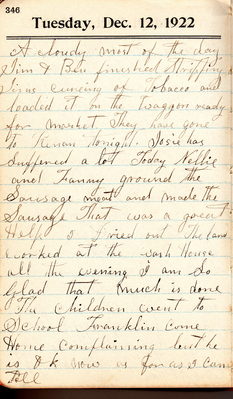 346
Tuesday, Dec. 12, 1922
A cloudy most of the day
Jim & Ben finished stripping
curing of Tobacco and
loaded it on the waggon ready
for market They have gone
to tonight. Josie has
suffered a lot Today Nellie
and Fanny ground the
Sausage meat and made the
Sausage That was a great
Help I fried out The
worked at the Wash House
all the evening I am So
Glad that much is done
The Children went to
School Franklin come
Home complaining but he
is O k now as far as I can
tell